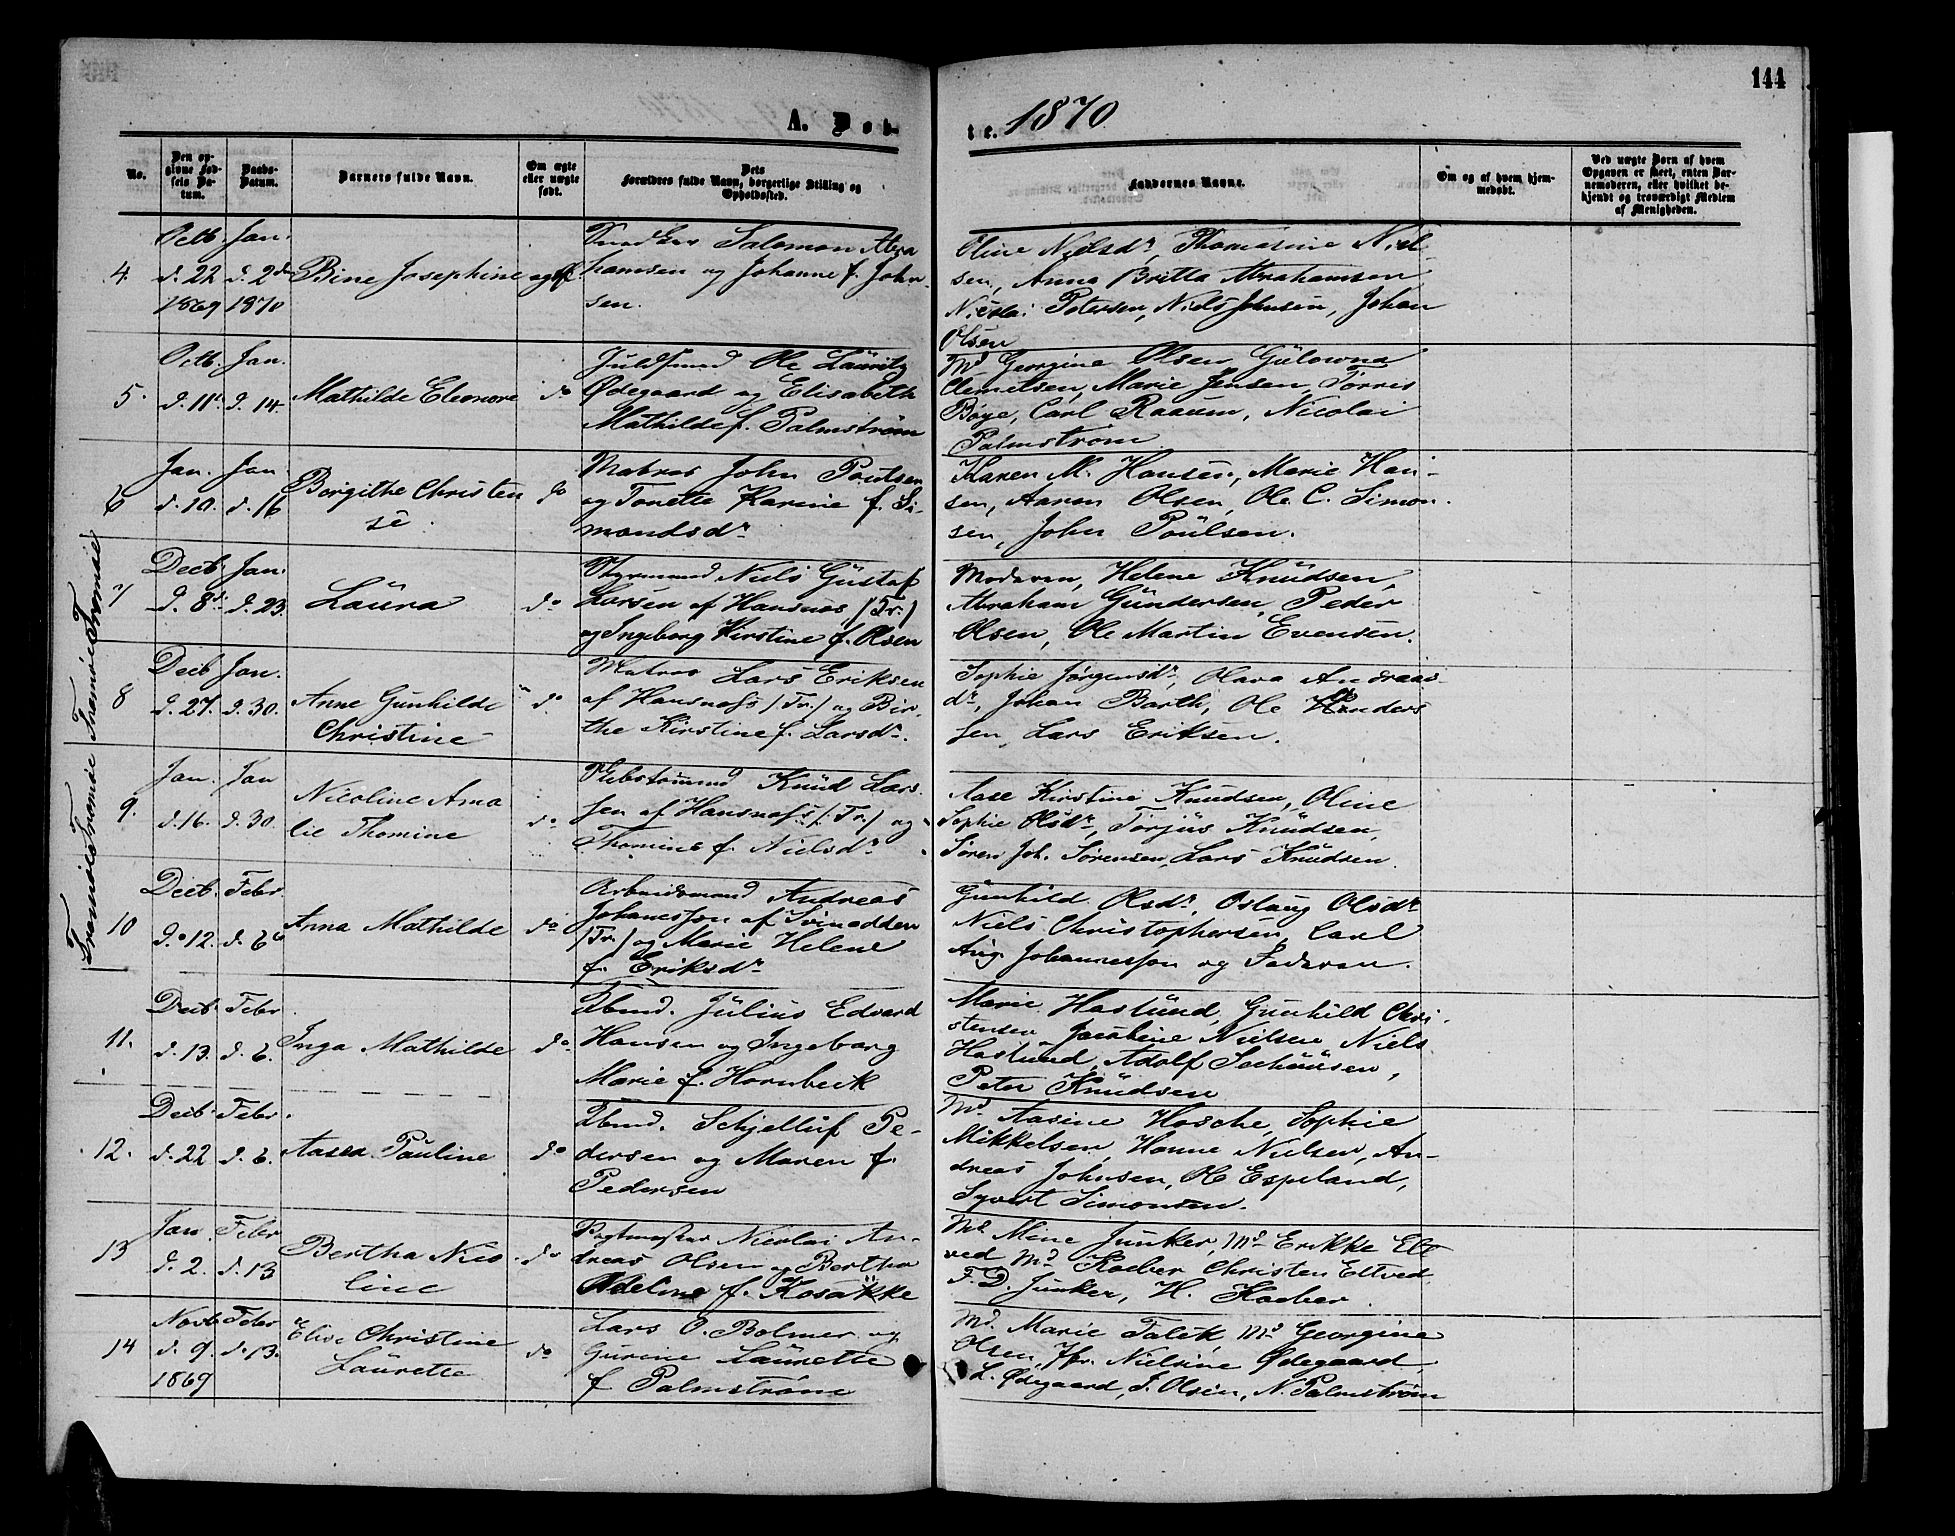 144
A. Døb-
te. 1870
No.
Den op-
givne Fød-
sels Da-
tum.
Daabs-
Datum.
Barnets fulde Navn.
Om ægte
eller uægte
født.
Dets
Forældres fulde Navn, borgerlige Stilling og
Opholdssted.
Faddernes Navne.
Om og af hvem hjem-
medøbt.
Ved uægte Børn af hvem
Opgaven er skeet, enten Bar-
nemoderen, eller hvilket be-
kjendt og troværdigt Medlem
af Menigheden.
4 Octb. d. 22 1869 Jan. d. 2den 1870
Bine Josephine
Snedker Salomon Abra
hamsen og Johanne f. John-
sen.
Oline Nielsdr, Thomasine Niel
sen, Anna Britta Abrahamsen
Nicolai Petersen, Niels Johnsen, Johan
Olsen
5. Octb. d. 11t. Jan. d. 14.
Mathilde Eleonore do
Ole Lauritz
Ødegaard og Elisabeth
Mathilde f. Palmstrøm
Md Georgine Olsen,
Clemetsen, Marie Jensen, Torres
Bøge, Carl Raaum, Nicolai
Palmstrøm
6 Jan. d. 10. Jan. d. 16
Borgithe Christen
se. do
Matros John Poulsen
og Tonette Karine f. Si-
mondsdr.
Karen M. Hansen, Marie Han-
sen, Aaron Olsen, Ole C. Simon-
sen, John Poulsen.
7 Decb. d. 8de Jan. d. 23.
Laura do
Styrmand Niels Gustaf
Larsen af Hansnæs (Tr.)
og Ingeborg Kirstine f. Olsen
Moderen, Helene Knudsen,
Abraham Gundersen, Peder
Olsen, Ole Martin Evensen.
8 Decb. d. 27. Jan. d. 30.
Anne Gunhilde
Christine do
Matros Lars Eriksen
af Hansnæs (Tr.) og Bir-
the Kirstine f. Larsdr.
Sophie Jørgensdr, Olava Andreas-
dr, Johan Barth, Ole
sen, Lars Eriksen.
9. Jan. d. 16. Jan d. 30.
Nicoline Ama
lie Thomine do
Knud Lars-
sen af Hansnæs (Tr.) og
Thomine f. Nielsdr.
Aase Kirstine Knudsen, Oline
Sophie Olsdr, Torjus Knudsen,
Søren Joh. Sørensen, Lars Knudsen.
10 Decb. d. 12. Febr. d. 6
Anna Mathilde do
Arbeidsmand Andreas
Johanessøn af Svinodden
(Tr.) og Marie Helene
f. Eriksdr
Gunhild Olsdr, Oslaug Olsdr
Niels Christophersen, Carl
Aug. Johannessøn og Faderen.
11. Decb. d. 13. Febr. d. 6.
Inga Mathilde do
Tbmd. Julius Edvard
Hansen og Ingeborg
Marie f. Hornbeck
Marie Haslund, Gunhild Chri-
stensen, Jacobine Nielsen, Niels
Haslund, Adolf Seehuusen,
Peter Knudsen
12. Decb. d. 22 Febr. d. 6.
Aasea Pauline do
Tbmd. Schjelluf Pe-
dersen og Maren f.
Pedersen
Md. Aasine Hasche, Sophie
Mikkelsen, Hanne Nielsen, An-
dreas Johnsen, Ole Espeland,
Syvert Simonsen.
13 Jan. d. 2. Febr d. 13
Bertha Nico
line do
Nicolai An-
dreas Olsen og Bertha
Adeline f. Kosakke
Md Mine Junker, Md Erikke Elt
ved, Md Kaeber, Christen Eltved,
F. D. Junker, H. Kaeber.
14 Novb. d. 9. 1869 Febr d. 13.
Elise Christine
Laurette do
Lars O. Bolmer og
Gurine Laurette
f. Palmstrøm
Md. Marie Falck, Md Georgine
Olsen, Jfr. Nielsine Ødegaard,
L. Ødegaard, J. Olsen, N. Palmstrøm
Tromøe Tromøe Tromøe Tromøe